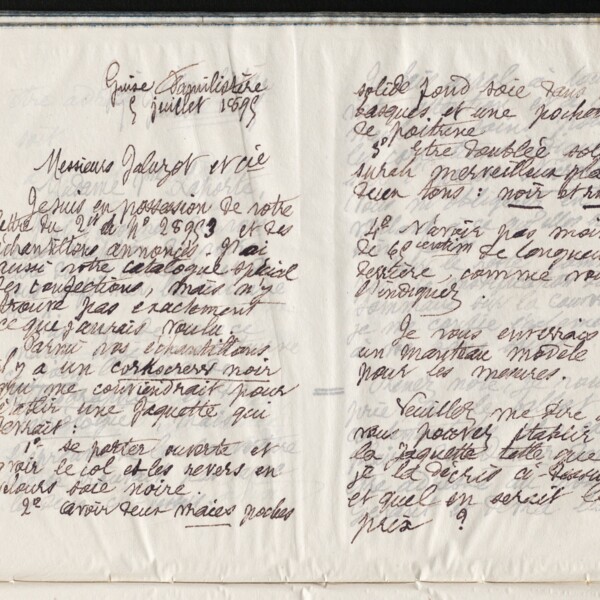 Guise Familistère
5 juillet 1895
Messieurs Jaluzot et cie
Je suis en possession de votre
lettre du 2 et de N° 28993 et des
échantillons annoncés. J'ai
aussi votre catalogue spécial
des confections, mais n'y
trouve pas exactement
ce que j'aurais voulu.
Parmi vos échantillons
il y a un corkscrew noir
qui me conviendrait pour
établir une jaquette qui
devrait :
1° se porter ouverte et
avoir le col et les revers en
velours soie noire.
2° avoir deux vraies poches
solide fond soie dans
basques et une pochette
de poitrine
3° Etre doublée
surah merveilleux
deux tons : noir et
4° N'avoir pas moins
de 69 centim de longueur
derrière, comme vous
l'indiquez.
Je vous enverrais
un manteau modèle
pour les mesures.
Veuillez me dire si
vous pouvez établir
la jaquette telle que
je la décris ci-dessus
et quel en serait le
prix ?